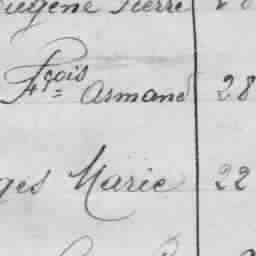 Eugène Pierre
Fçois Armand 28
ges Marie 22